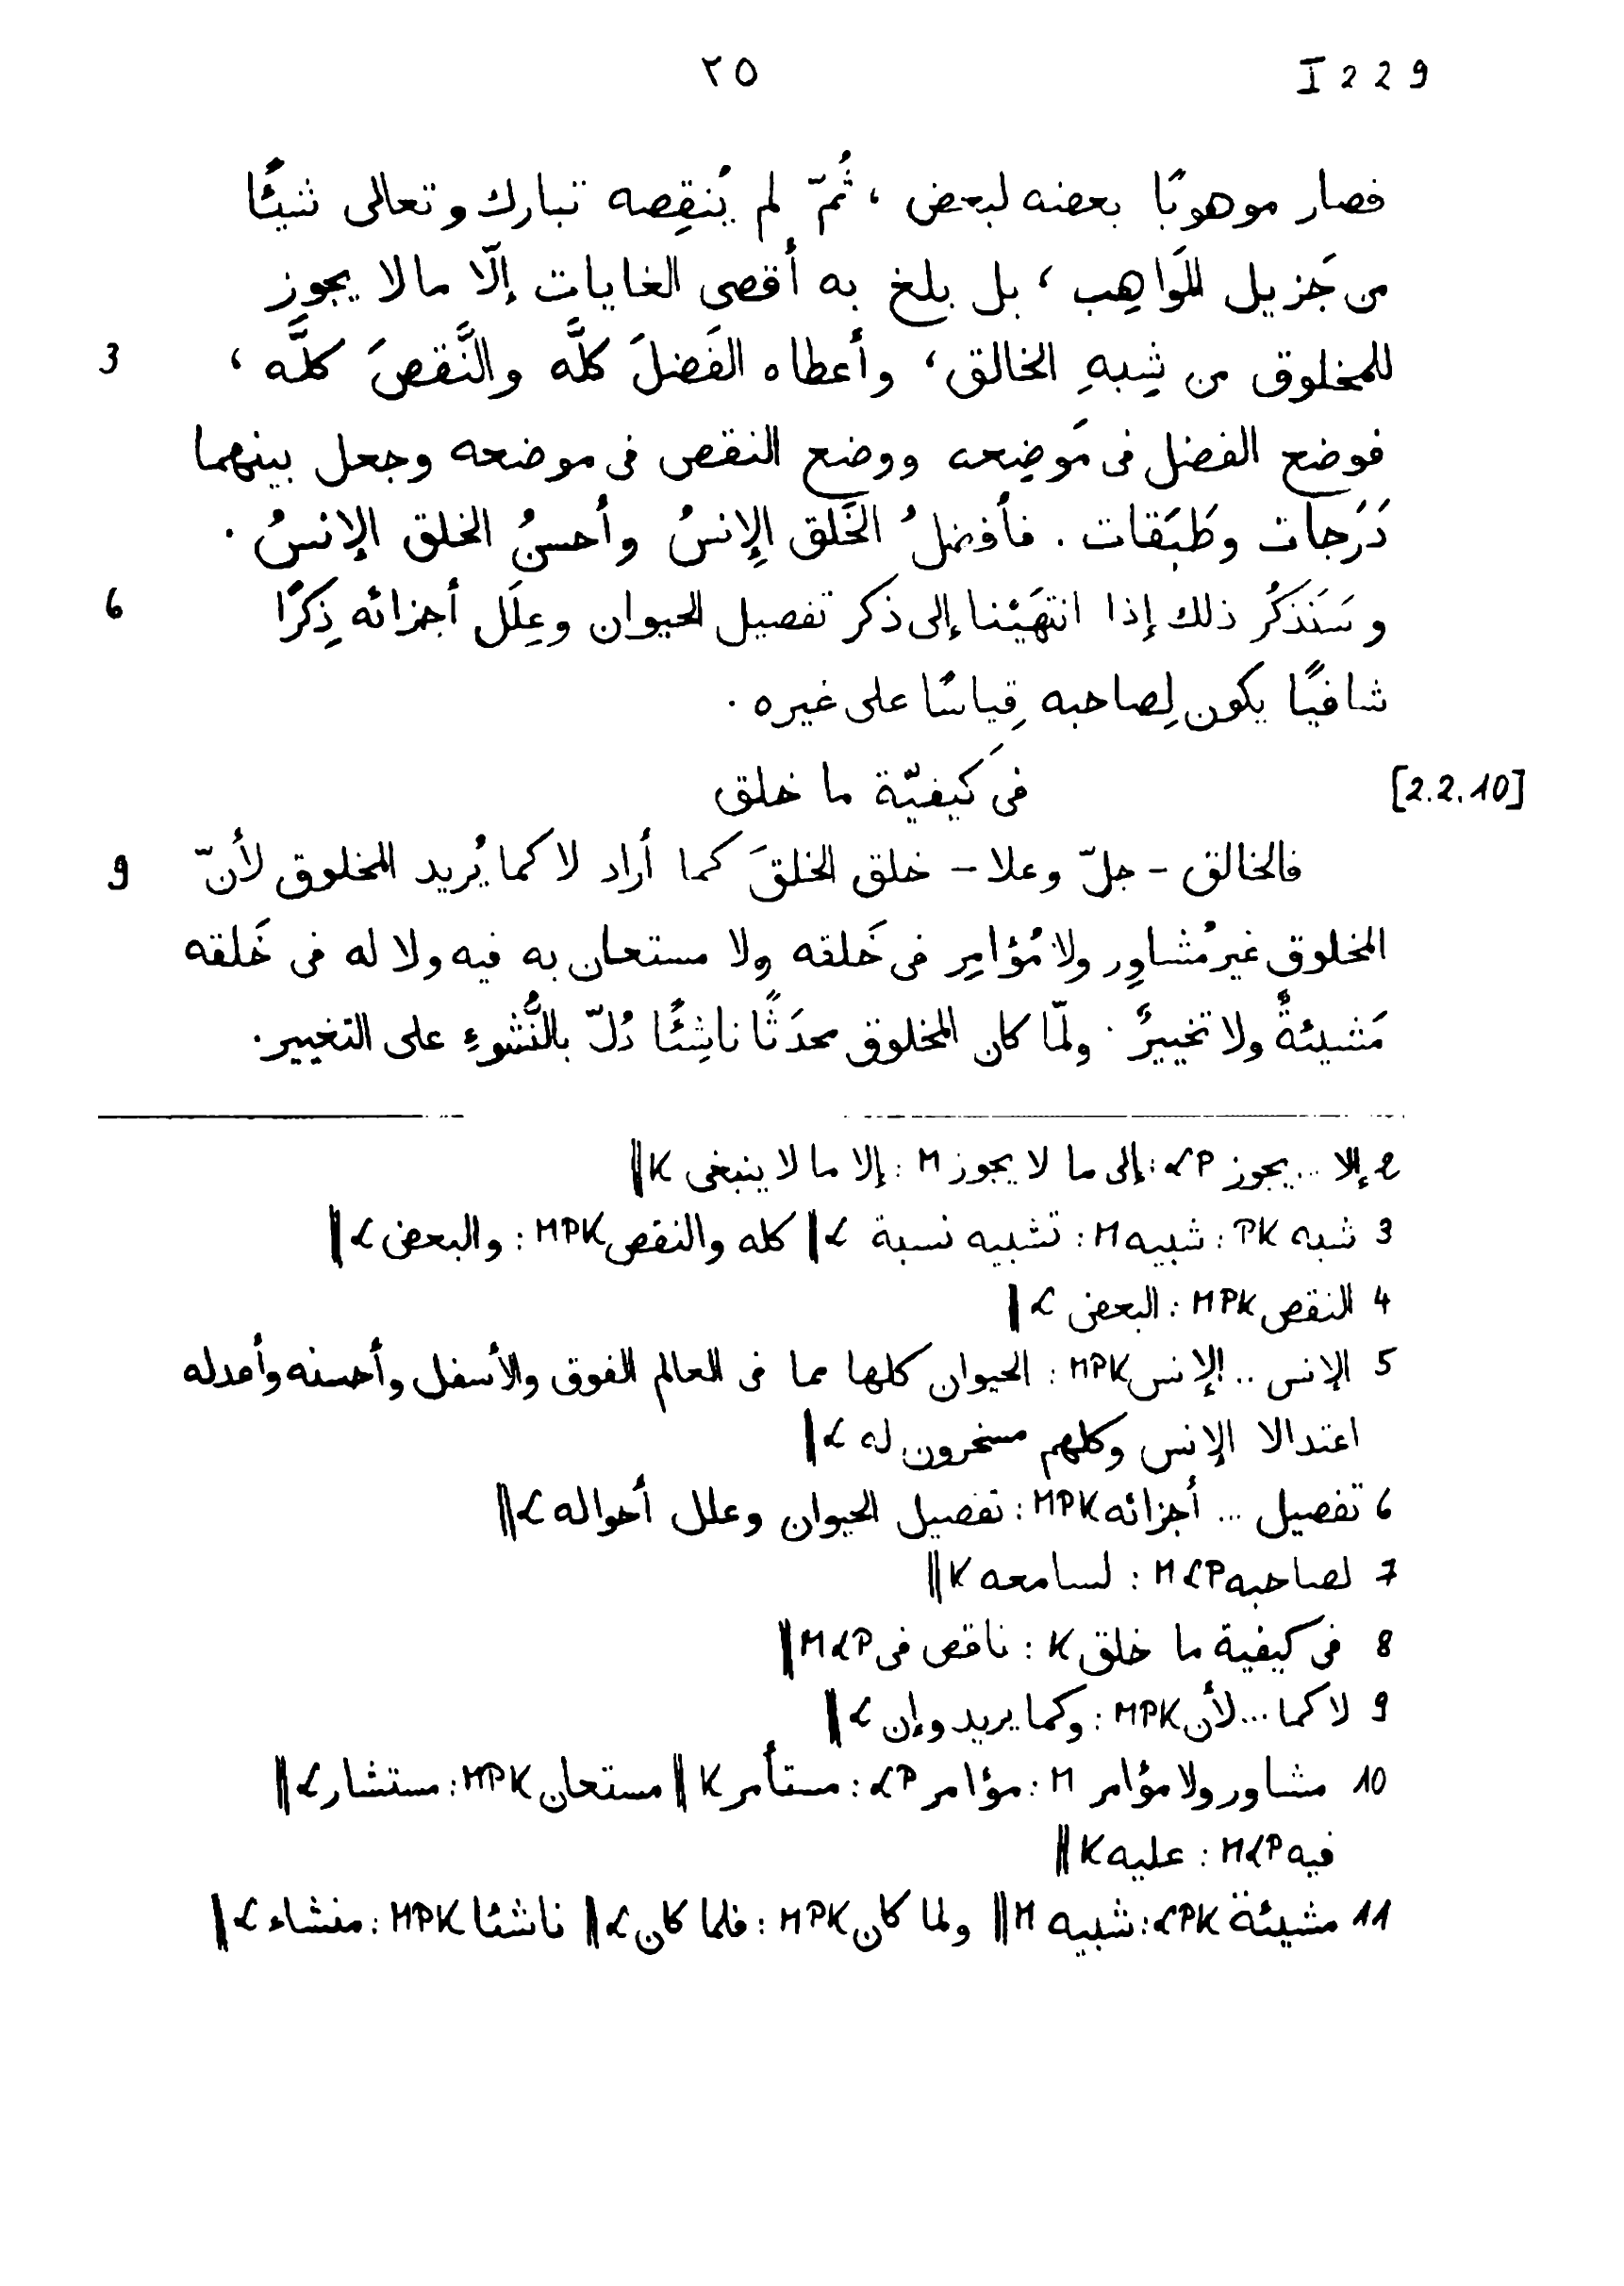 ٢٥ I 229
فصار موهوبًا بعضه لبعض ، ثُمّ لم يُنقِصه تبارك وتعالى شيئًا
من جَزيل المَواهِب ، بل بلغ به أقصى الغايات إلّا ما لا يجوز
للمخلوق من شِبهِ الخالق ، وأعطاه الفَضلَ كلَّه والنَّقصَ كلَّه ، 3
فوضع الفضل فى مَوضِعه ووضع النقص فى موضعه وجعل بينهما
دَرَجات وطَبَقات . فأفضلُ الخَلق الإنسُ وأحسنُ الخلق الإنسُ .
وسَنَذكُر ذلك إذا انتهَيْنا إلى ذكر تفصيل الحيوان وعِلَل أجزائه ذِكرًا 6
شافيًا يكون لِصاحبه قِياسًا على غيره .
[2.2.10] فى كَيفيّة ما خلق
فالخالق - جلّ وعلا - خلق الخلقَ كما أراد لا كما يُريد المخلوق لأنّ 9
المخلوق غير مُشاوِر ولا مُؤامِر فى خَلقه ولا مستعان به فيه ولا له فى خَلقه
مَشيئةٌ ولا تخييرٌ . ولمّا كان المخلوق محدَثًا ناشِئًا دُلّ بالنُّشوءِ على التغيير .
2 إلا ... يجوز LP : إلى ما لا يجوز M : إلا ما لا ينبغى K ||
3 شبه PK : شبيه M : تشبيه نسبة L || كله والنقص MPK : والبعض L ||
4 النقص MPK : البعض L ||
5 الإنس .. الإنس MPK : الحيوان كلها مما فى العالم الفوق والأسفل وأحسنه وأعدله
اعتدالا الإنس وكلهم مسخرون له L ||
6 تفصيل ... أجزائه MPK : تفصيل الحيوان وعلل أحواله L ||
7 لصاحبه MLP : لسامعه K ||
8 فى كيفية ما خلق K : ناقص فى MLP ||
9 لا كما ... لأن MPK : وكما يريد وإن L ||
10 مشاور ولا مؤامر M : مؤامر LP : مستأمر K || مستعان MPK : مستشار L ||
فيه MLP : عليه K ||
11 مشيئة LPK : شبيه M || ولما كان MPK : فلما كان L || ناشئا MPK : منشاء L ||